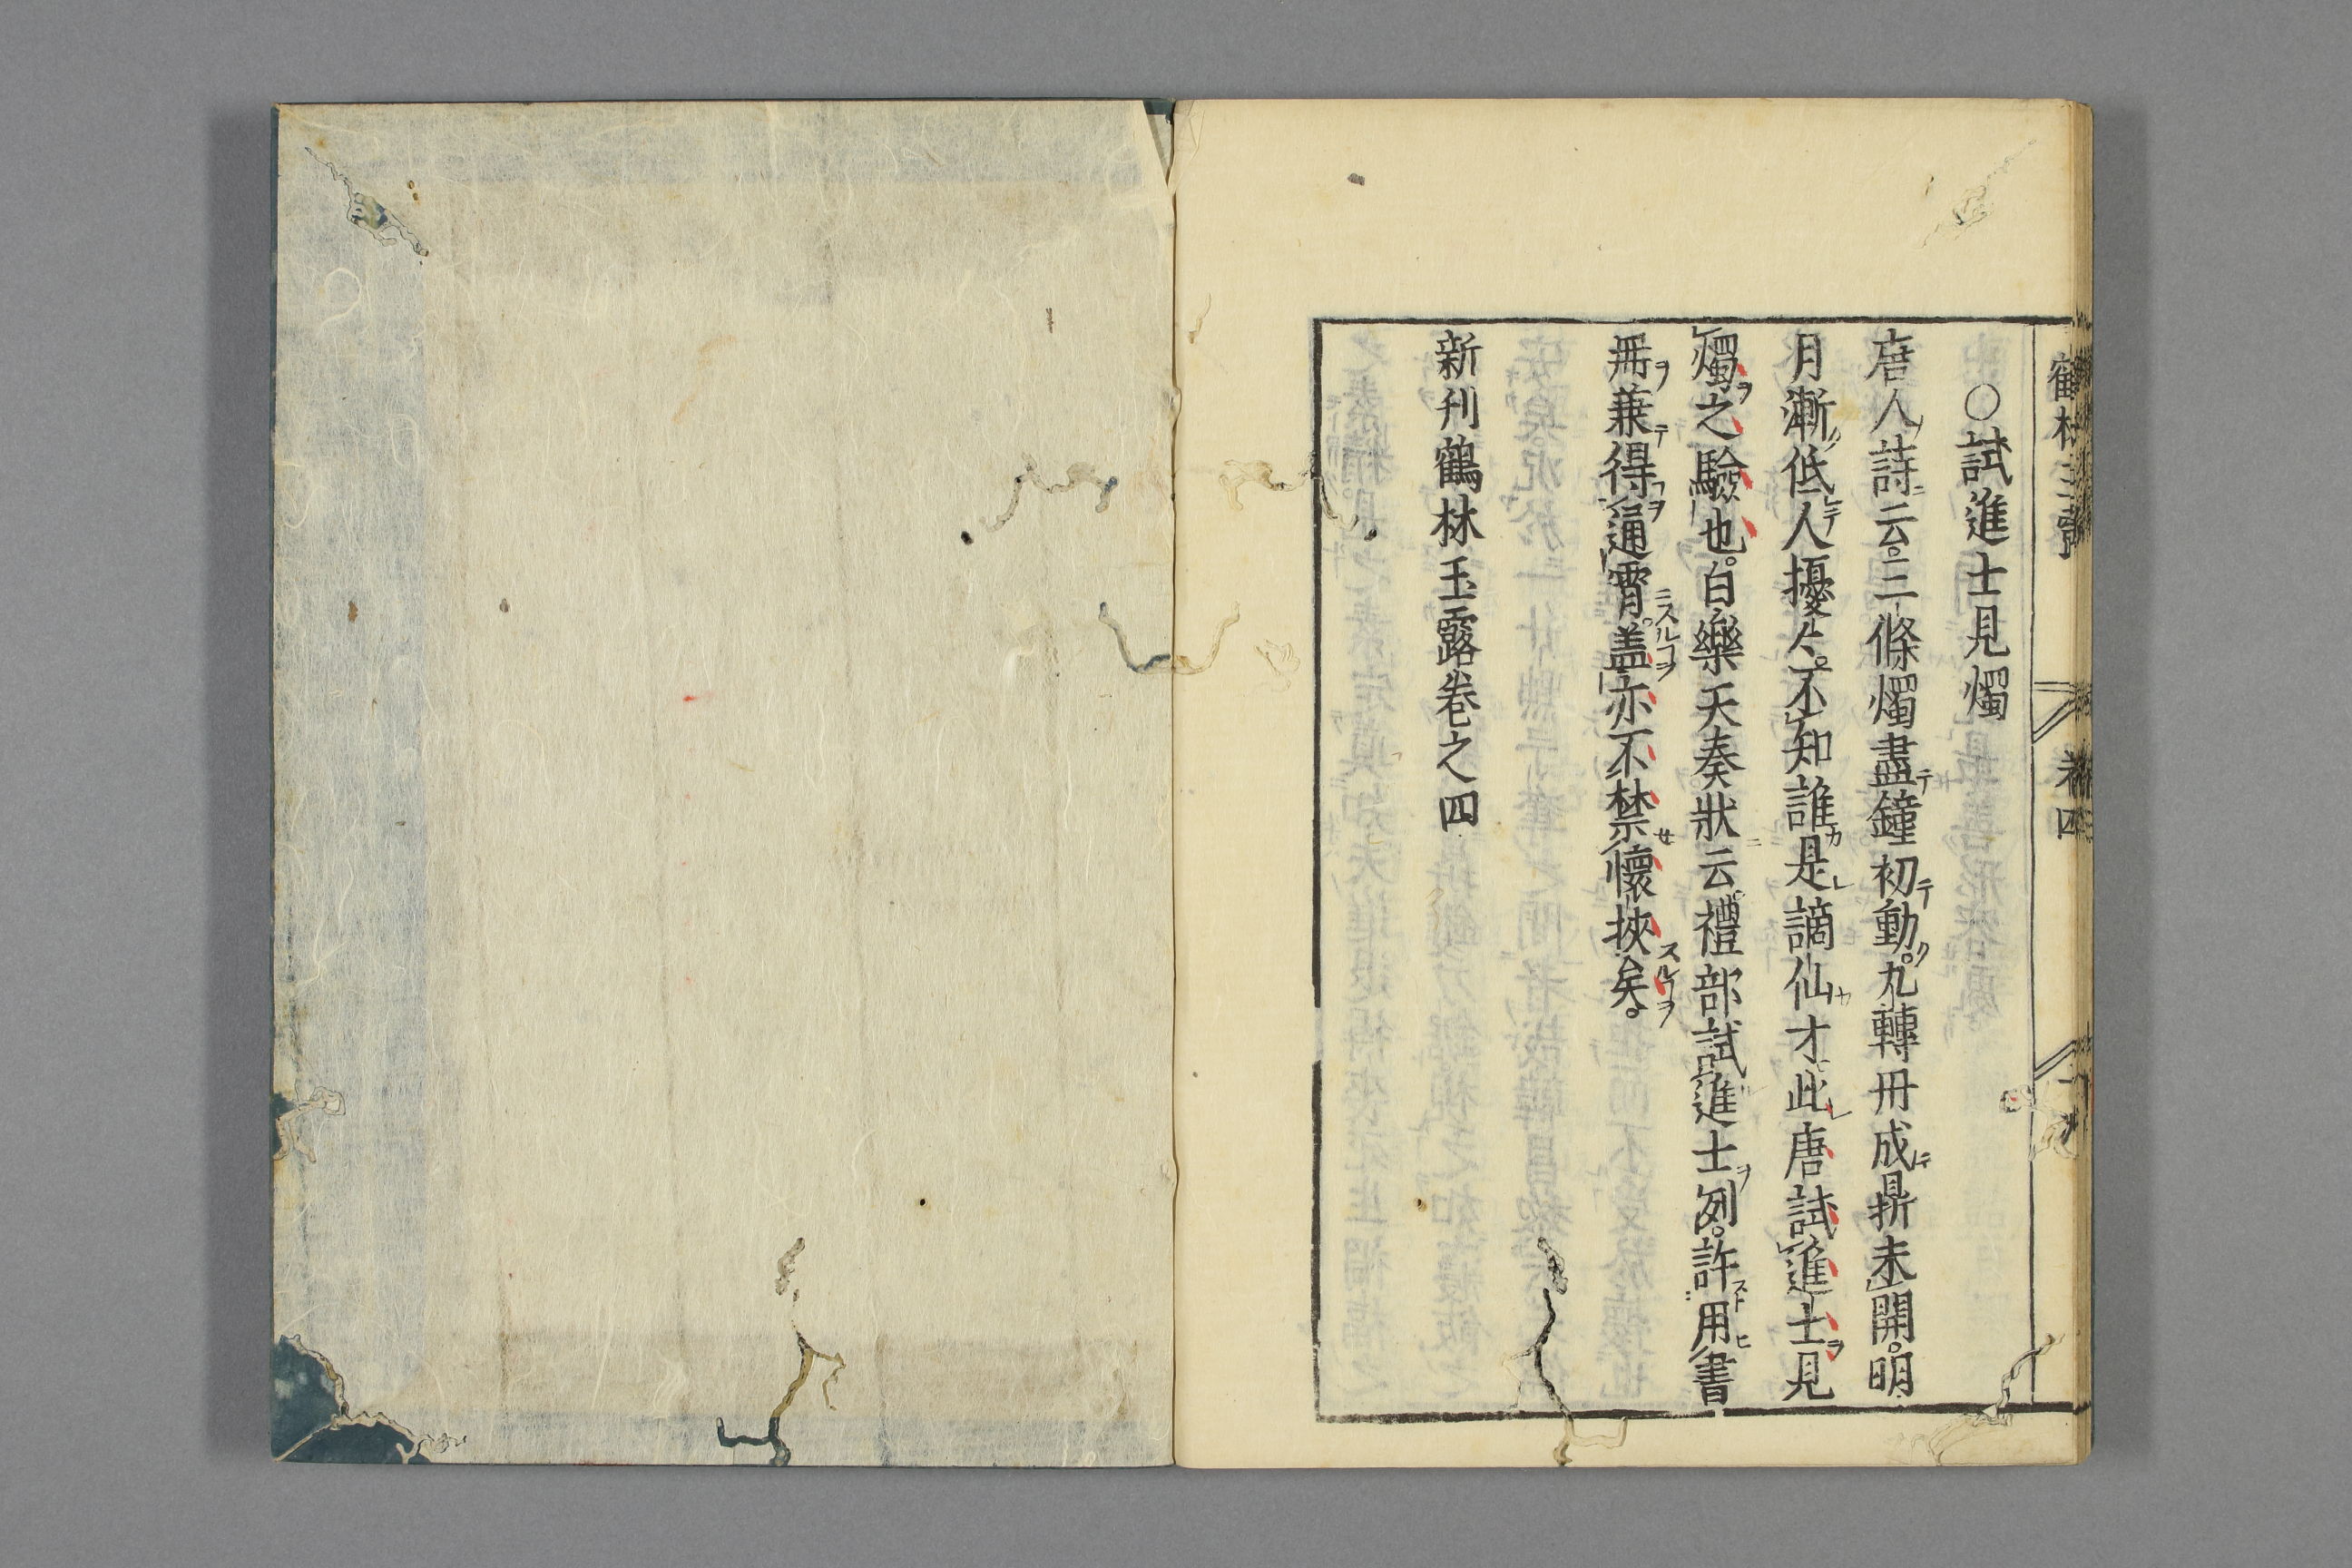 〇試進士見燭
唐人詩云。三條燭盡鐘初動。九轉丹成鼎未開。明
月漸低人擾々。不知誰是謫仙才此唐試進士見
燭之驗也。白樂天奏狀云。禮部試進士例。許用書
冊兼得通宵。盖亦不禁懷挾矣。
新刊鶴林玉露卷之四
鶴林玉露
卷四